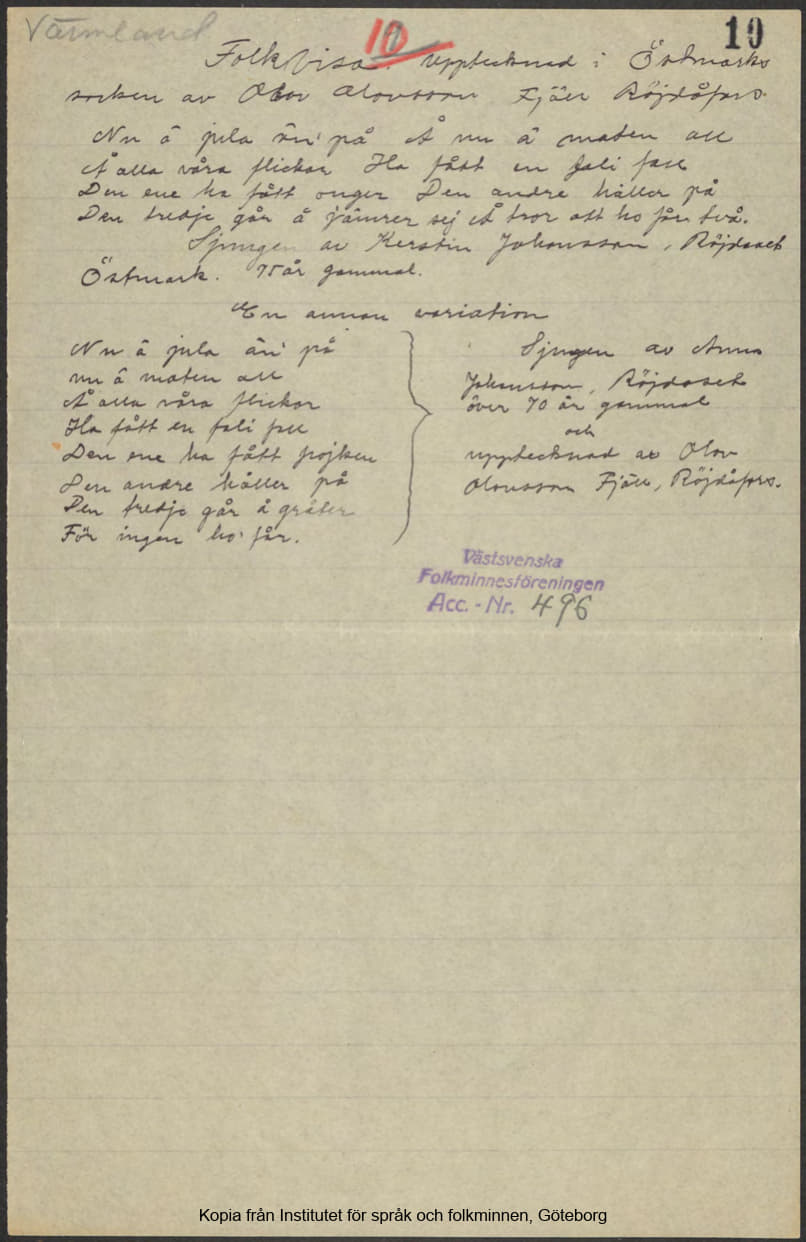 Värmland
10
19
Folkvisa. upptecknad i Östmarks
socken av Olov Olovsson Fjäll Röjdåfors.
Nu ä jula än' på Å nu ä maten all
Å alla våra flickor Ha fått en fali fall
Den ene ha fått onger Den andre håller på
Den tredje går å jämrer sej Å tror att ho får två.
Sjungen av Kerstin Johansson, Röjdoset
Östmark. 75 år gammal.
En annan variation
Nu ä jula än' på
nu ä maten all
Å alla våra flickor
Ha fått en fali fall
Den ene ha fått pojken
Den andre håller på
Den tredje går å gråter
För ingen ho' får.
Sjungen av Anna
Johansson, Röjdoset
över 70 år gammal
och
upptecknad av Olov
Olovsson Fjäll, Röjdåfors.
Västsvenska
Folkminnesföreningen
Acc. - Nr. 496
Kopia från Institutet för språk och folkminnen, Göteborg